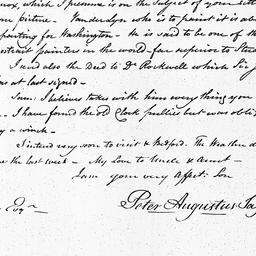 which I presume is on the subject of your lett
on picture. Vanderlyn who is to paint it is als
painting for Washington – He is said to be one of th
painters in the world – far superior to Stu
I send also the Deed to Dr Rockwell which Sir J
as at last signed –
Sam: I believe takes with him everything you
I have found the old Clock pullies but was oblig
a winch –
I intend very soon to visit Bedford. The Weather
the last week – My Love to Uncle & Aunt –
I am your very Affect: Son
Peter Augustus Jay
Esqr